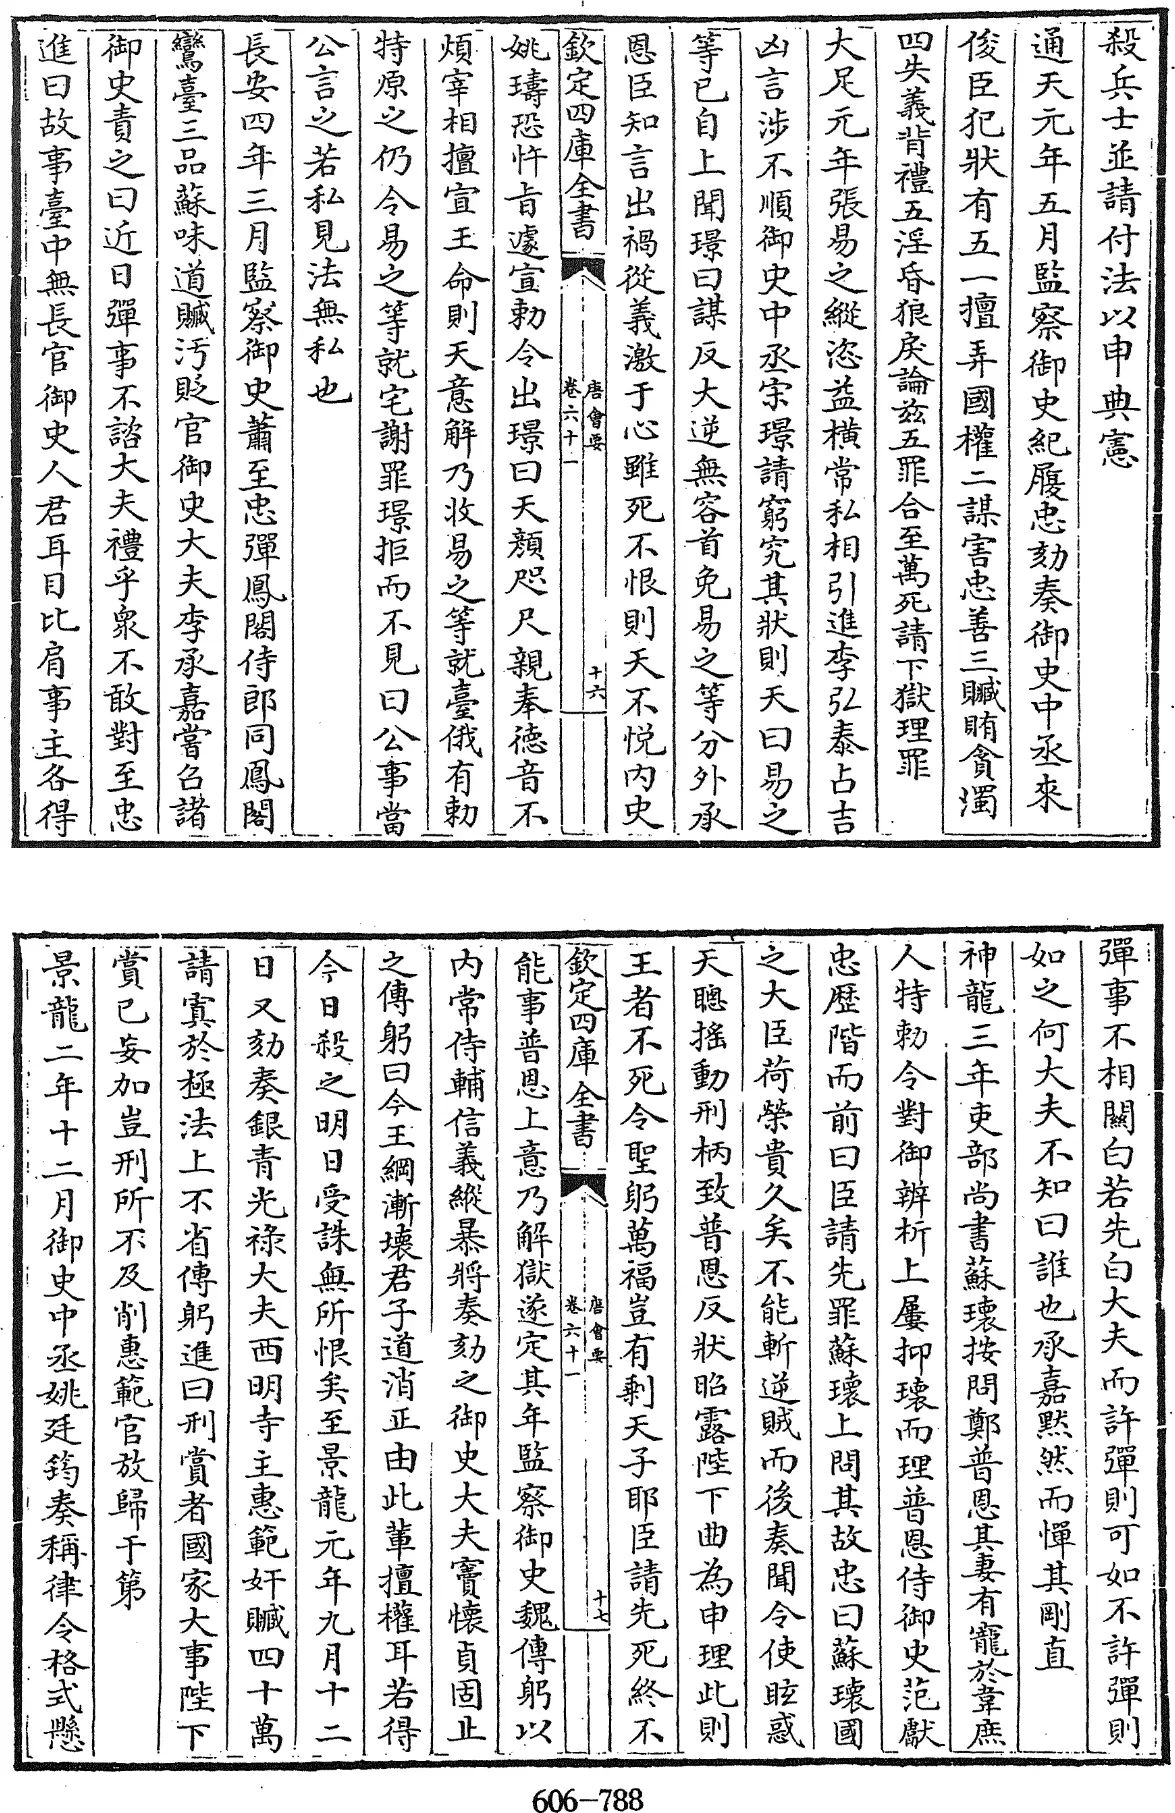 殺兵士並請付法以申典憲
通天元年五月監察御史紀履忠劾奏御史中丞來
俊臣犯狀有五一擅弄國權二謀害忠善三贓賄貪濁
四失義背禮五淫昏狼戾論兹五罪合至萬死請下獄理罪
大足元年張易之縱恣益橫常私相引進李弘泰占吉
凶言涉不順御史中丞宋璟請窮究其狀則天曰易之
等已自上聞璟曰謀反大逆無容首免易之等分外承
恩臣知言出禍從義激于心雖死不恨則天不悅内史
欽定四庫全書
唐會要
卷六十一
十六
姚璹恐忤旨遽宣勅令出璟曰天顏咫尺親奉德音不
煩宰相擅宣王命則天意解乃收易之等就臺俄有勅
特原之仍令易之等就宅謝罪璟拒而不見曰公事當
公言之若私見法無私也
長安四年三月監察御史蕭至忠彈鳳閣侍郎同鳳閣
鸞臺三品蘇味道贓汚貶官御史大夫李承嘉嘗召諸
御史責之曰近日彈事不諮大夫禮乎衆不敢對至忠
進曰故事臺中無長官御史人君耳目比肩事主各得
彈事不相關白若先白大夫而許彈則可如不許彈則
如之何大夫不知曰誰也承嘉黙然而憚其剛直
神龍三年吏部尚書蘇瓌按問鄭普恩其妻有寵於韋庶
人特勅令對御辨析上屢抑瓌而理普恩侍御史范獻
忠歴階而前曰臣請先罪蘇瓌上問其故忠曰蘇瓌國
之大臣荷榮貴久矣不能斬逆賊而後奏聞令使眩惑
天聰搖動刑柄致普恩反狀昭露陛下曲為申理此則
王者不死令聖躬萬福豈有剩天子耶臣請先死終不
欽定四庫全書
唐會要
卷六十一
十七
能事普恩上意乃解獄遂定其年監察御史魏傳躬以
内常侍輔信義縱暴將奏劾之御史大夫竇懷貞固止
之傳躬曰今王綱漸壞君子道消正由此輩擅權耳若得
今日殺之明日受誅無所恨矣至景龍元年九月十二
日又劾奏銀青光祿大夫西明寺主惠範奸贓四十萬
請寘於極法上不省傳躬進曰刑賞者國家大事陛下
賞已妄加豈刑所不及削惠範官放歸于第
景龍二年十二月御史中丞姚廷筠奏稱律令格式懸
606-788